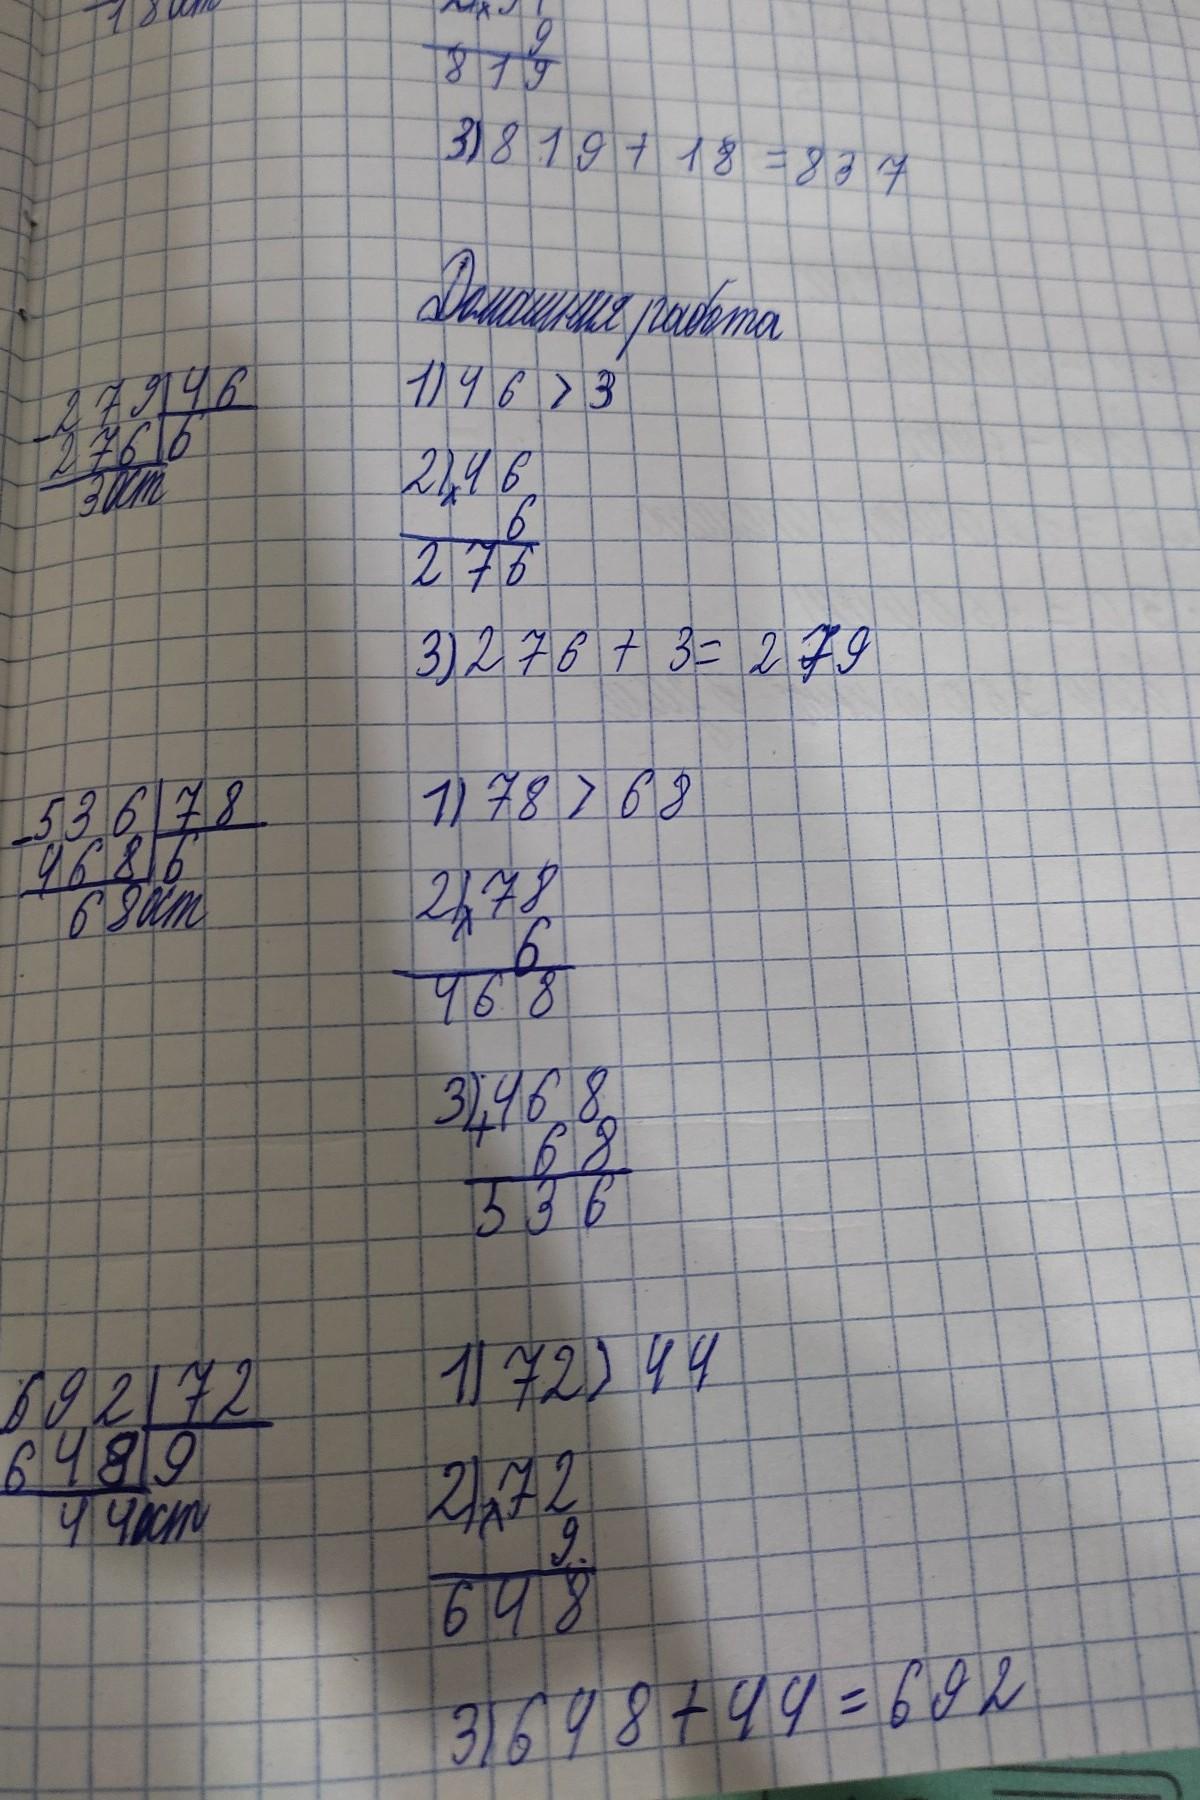 18 ост
9
819
3) 819 + 18 = 837
Домашняя работа
279 46
- 276 6
3 ост
1) 46 > 3
2) x 46
6
276
3) 276 + 3 = 279
- 536 78
468 6
68 ост
1) 78 > 68
2) x 78
6
468
3) + 468
68
536
692 72
648 9
44 ост
1) 72 > 44
2) x 72
9
648
3) 648 + 44 = 692